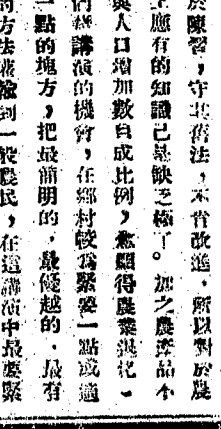 於陳習，守其舊法，不肯改進，所以對於農
上應有的知識已是缺乏極了。加之農產品不
與人口增加數目成比例，愈顯得農業退化。
們舉講演的機會，在鄉村較為緊要一點或適
一點的塊方，把最簡明的，最優越的，最有
的方法灌輸到一般農民，在這講演中最要緊